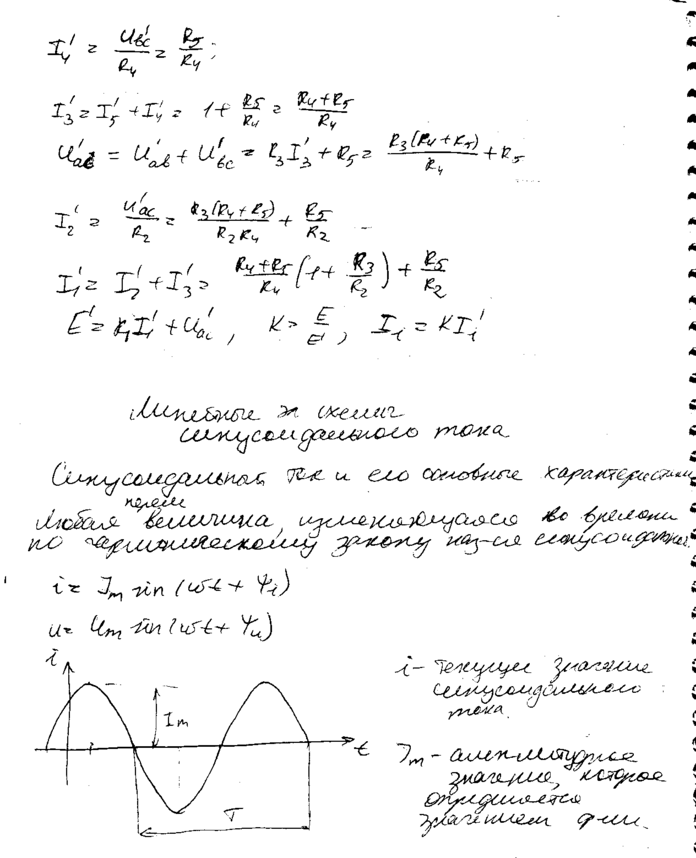 I₄' = U'вс/R₄ = R₅/R₄;
I₃' = I₅' + I₄' = 1 + R₅/R₄ = (R₄+R₅)/R₄
U'ас = U'ав + U'вс = R₃I₃' + R₅ = R₃(R₄+R₅)/R₄ + R₅
I₂' = U'ас/R₂ = R₃(R₄+R₅)/R₂R₄ + R₅/R₂
I₁' = I₂' + I₃' = (R₄+R₅)/R₄ (1 + R₃/R₂) + R₅/R₂
E' = R₁I₁' + U'ас, K = E/E', Iᵢ = KIᵢ'
Линейные эл схемы
синусоидального тока
Синусоидальный ток и его основные характеристики
Любая величина, изменяющаяся во времени
по гармоническому закону наз-ся синусоидальной.
i = Iₘ sin(ωt + Ψᵢ)
u = Uₘ sin(ωt + Ψᵤ)
i
i – текущее значение
синусоидального
тока.
Iₘ
t
Iₘ – амплитудное
значение, которое
определяется
значением ф-ии.
T